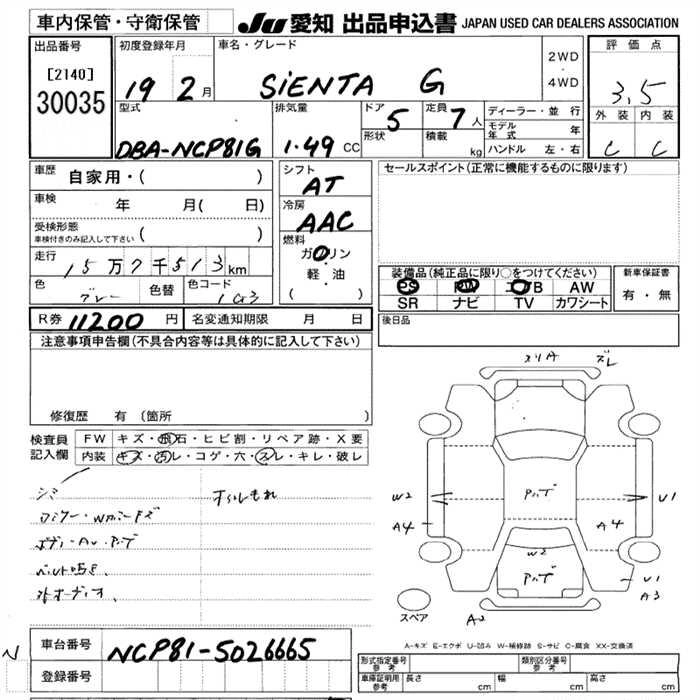 車内保管・守衛保管
JU 愛知 出品申込書 JAPAN USED CAR DEALERS ASSOCIATION
出品番号
[2140]
30035
初度登録年月
19 2 月
車名・グレード
SIENTA G
2WD
・
4WD
評価点
3.5
外装 内装
C C
型式
DBA-NCP81G
排気量
1.49 CC
ドア 5
形状
定員 7 人
積載 kg
ディーラー・並行
モデル年式 年
ハンドル 左・右
車歴 自家用・( )
車検 年 月( 日)
受検形態
車検付きのみ記入して下さい ( )
走行 15万7千513km
色 グレー 色替 色コード 1G3
シフト
AT
冷房
AAC
燃料
ガソリン
軽・油
( )
セールスポイント(正常に機能するものに限ります)
装備品(純正品に限り○をつけてください)
PS PW エアB AW
SR ナビ TV カワシート
新車保証書
有・無
R券 11200 円 名変通知期限 月 日
後日品
注意事項申告欄(不具合内容等は具体的に記入して下さい)
修復歴 有(箇所
検査員
記入欄
FW キズ・飛石・ヒビ割・リペア跡・X要
内装 キズ・汚レ・コゲ・穴・スレ・キレ・破レ
シミ
オイルもれ
A4
W2
U1
A4
W2
U1
A3
A2
スペア
A-キズ E-エクボ U-凹み W-補修跡 S-サビ C-腐食 XX-交換済
車台番号 NCP81-5026665
登録番号
形式指定番号
参考
類別区分番号
参考
車庫証明用
参考
長さ cm 幅 cm 高さ cm